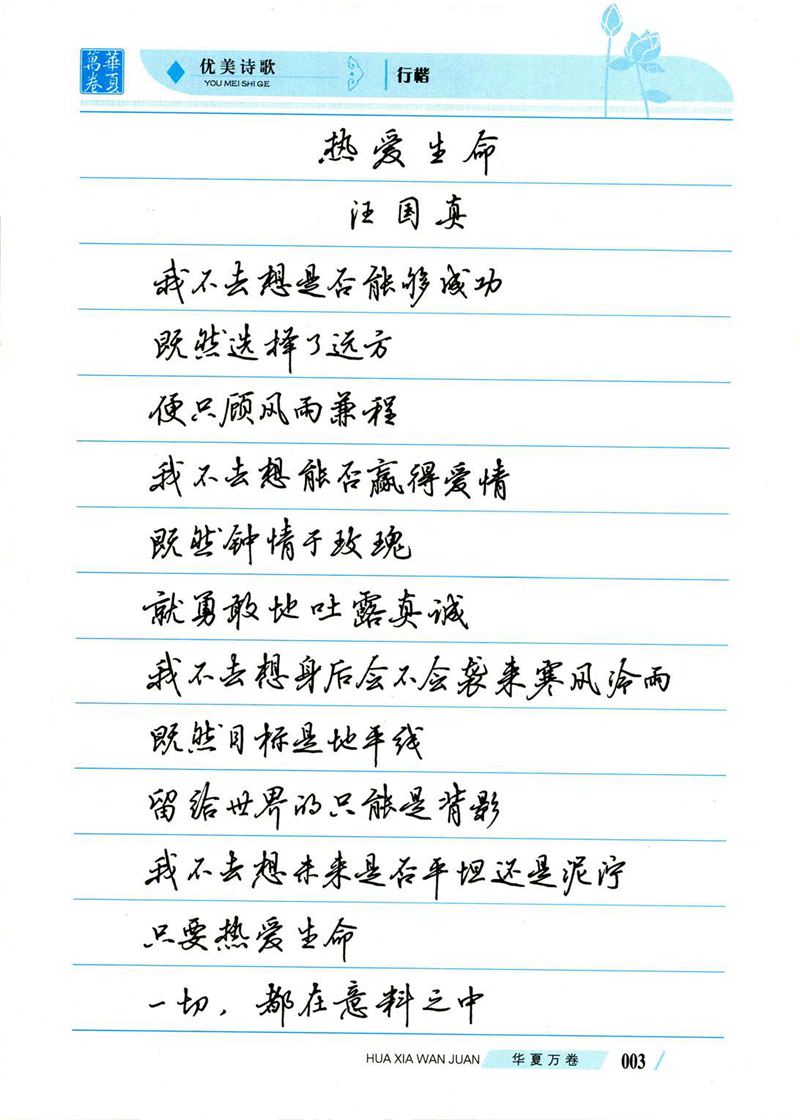 華夏萬卷
优美诗歌
YOU MEI SHI GE
行楷
热爱生命
汪国真
我不去想是否能够成功
既然选择了远方
便只顾风雨兼程
我不去想能否赢得爱情
既然钟情于玫瑰
就勇敢地吐露真诚
我不去想身后会不会袭来寒风冷雨
既然目标是地平线
留给世界的只能是背影
我不去想未来是否平坦还是泥泞
只要热爱生命
一切，都在意料之中
HUA XIA WAN JUAN
华夏万卷
003